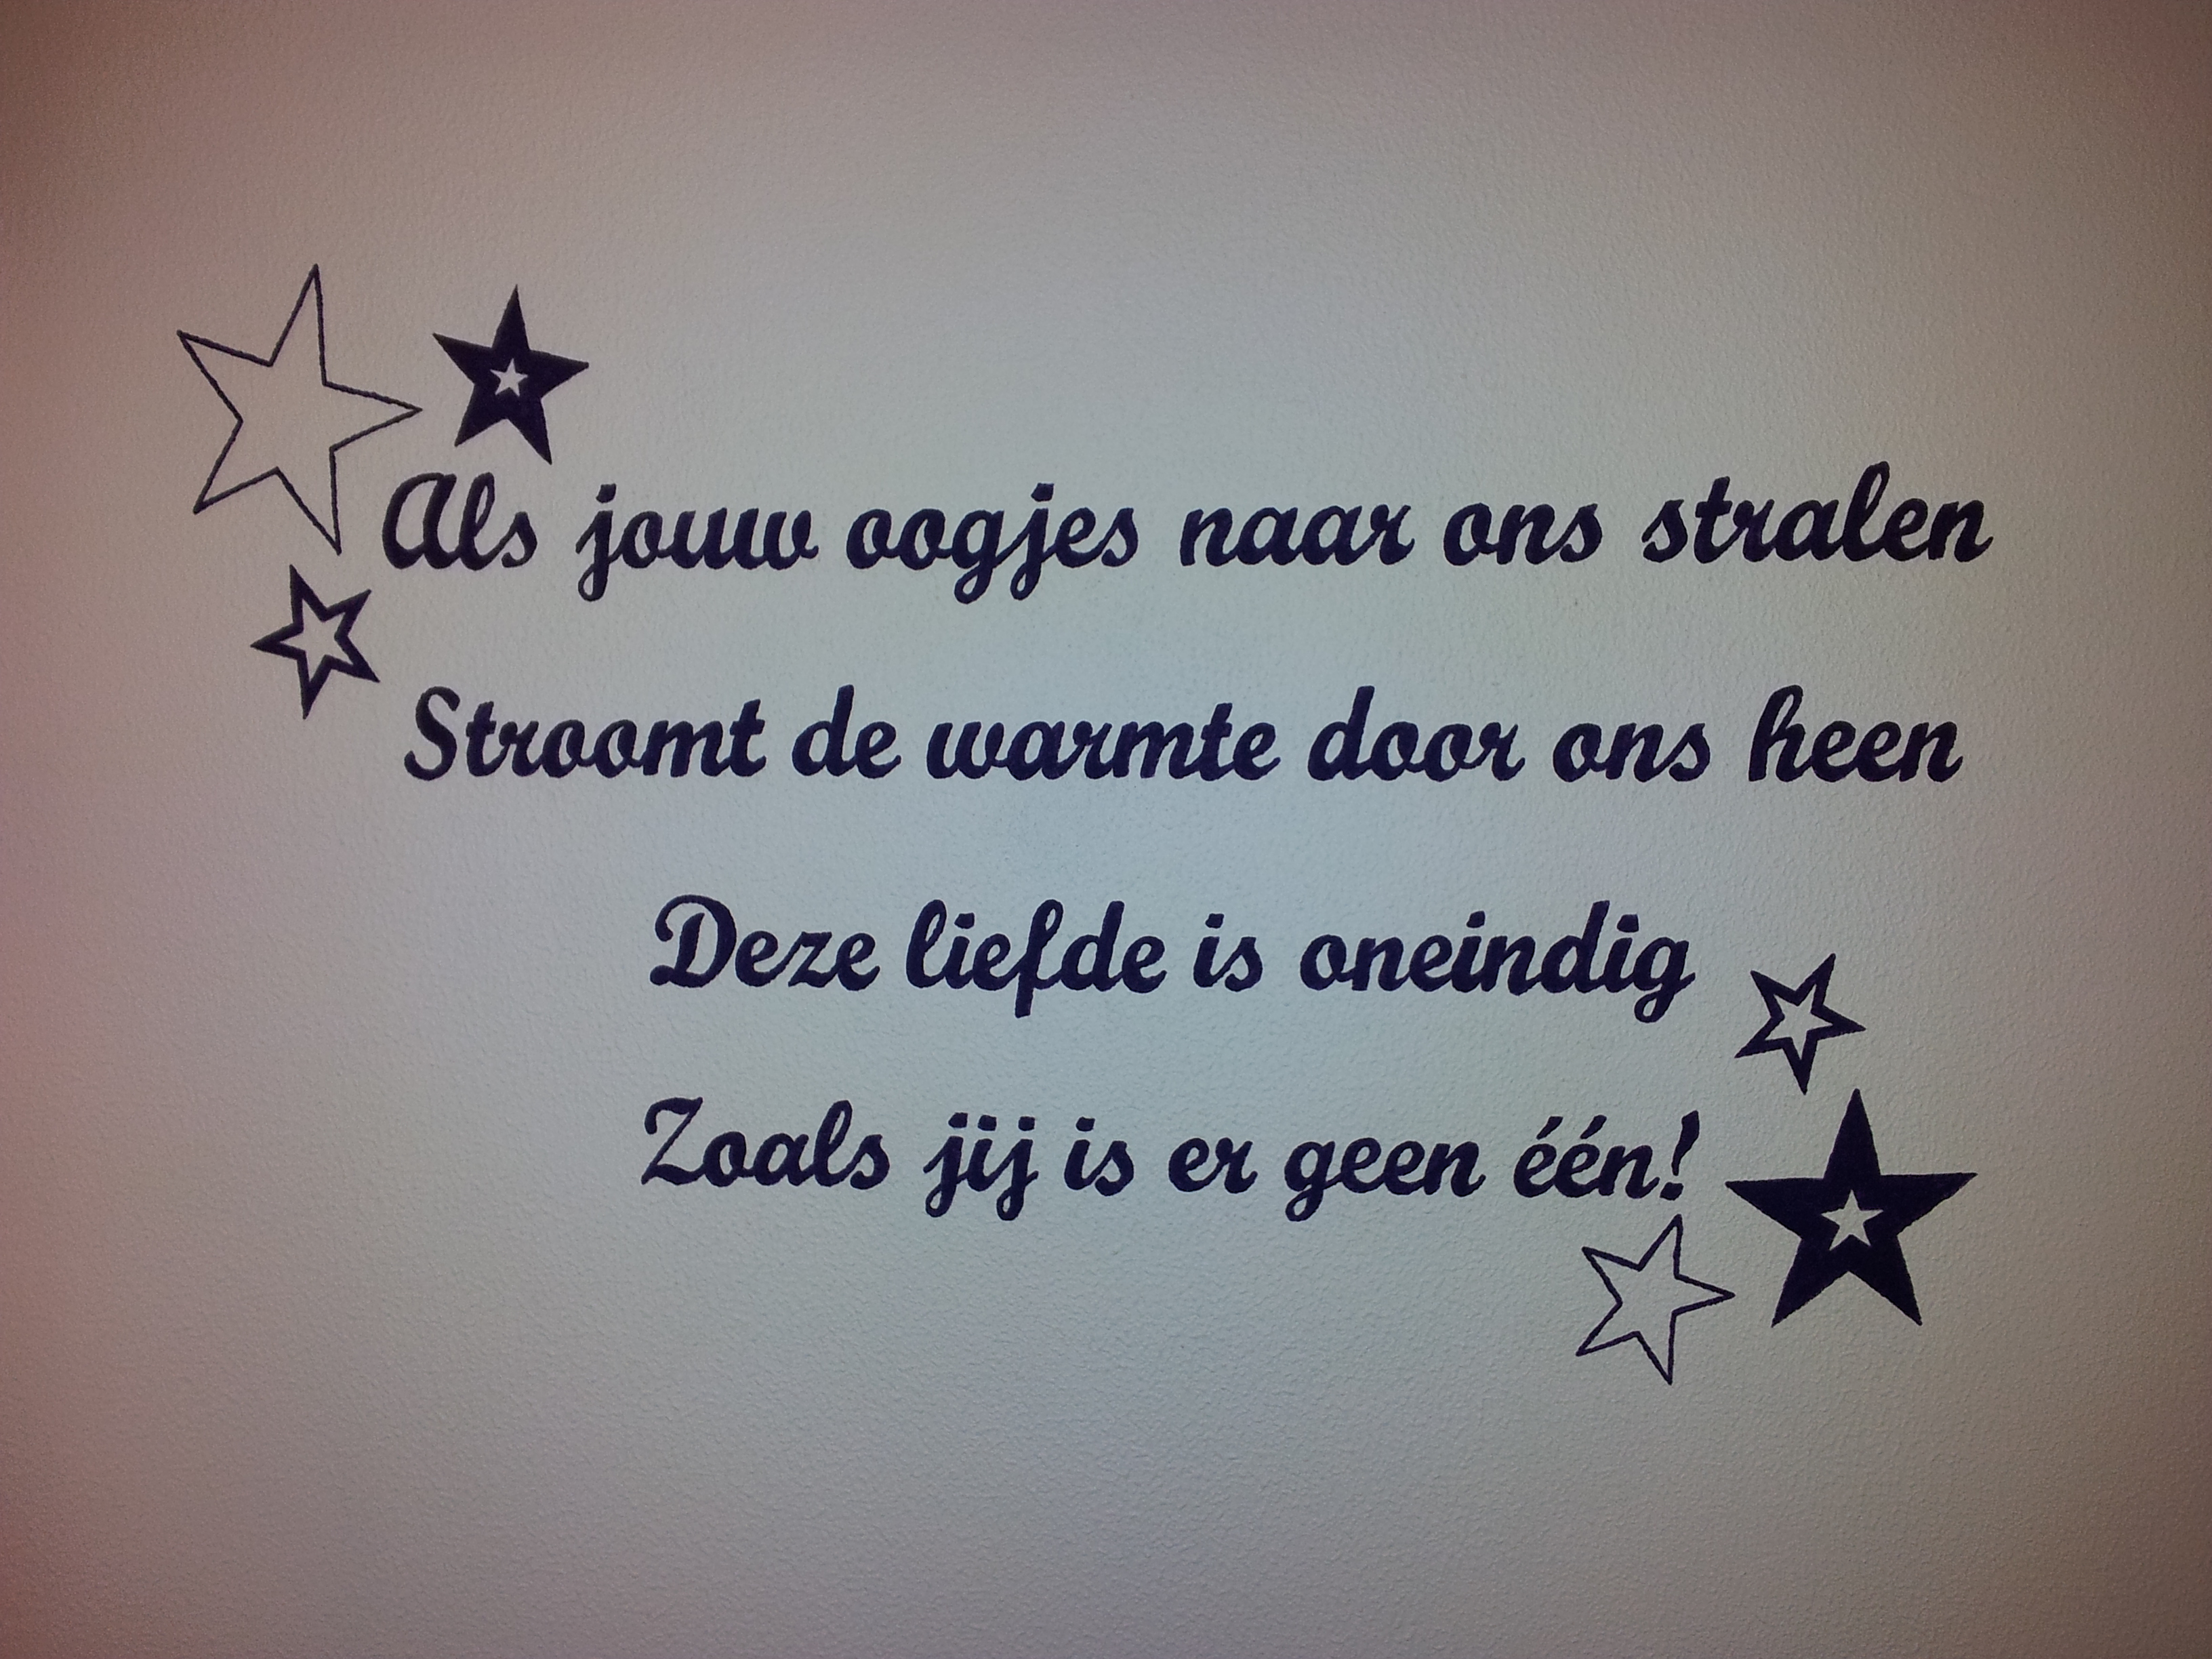 Als jouw oogjes naar ons stralen
Stroomt de warmte door ons heen
Deze liefde is oneindig
Zoals jij is er geen één!